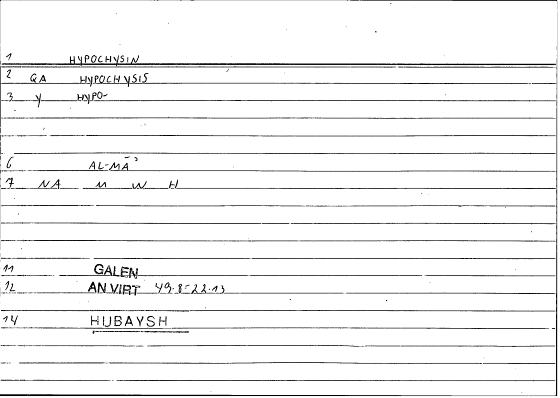 1 HYPOCHYSIN
2 GA HYPOCHYSIS
3 y HYPO-
6 AL-MĀʾ
7 NA M W H
11 GALEN
12 AN VIRT 49.8=22.13
14 HUBAYSH